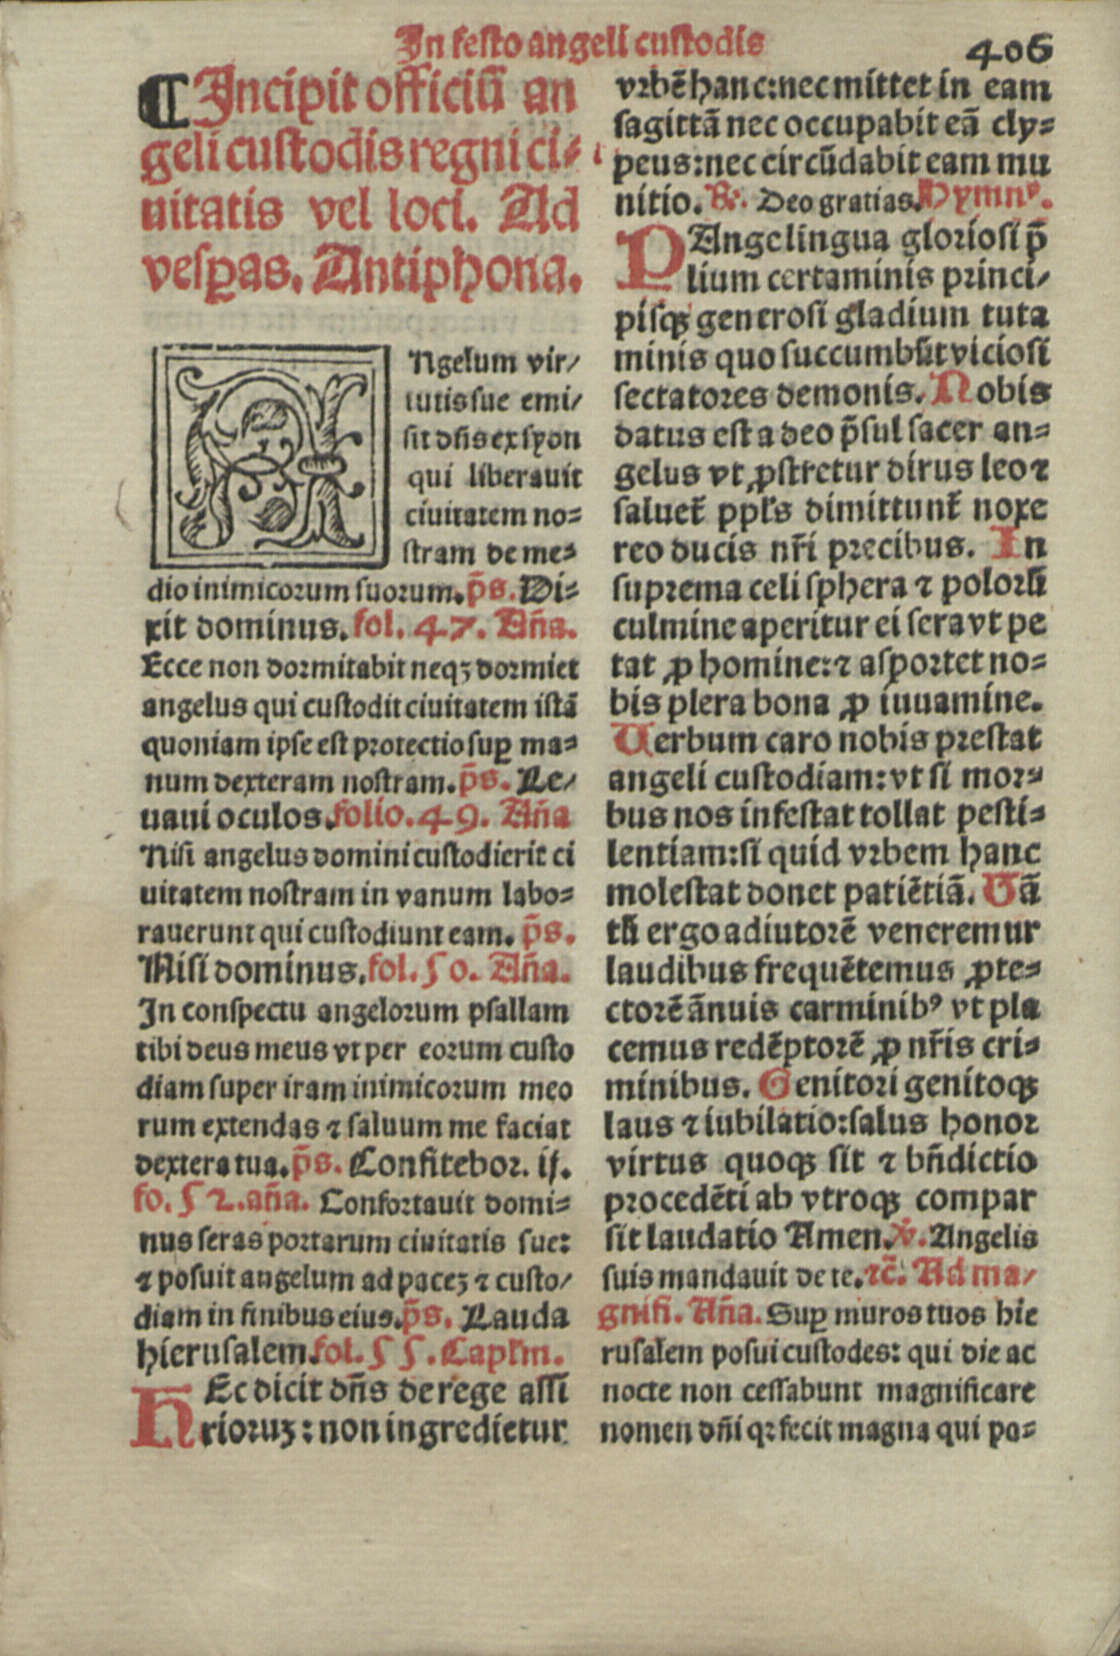 In festo angeli custodis
406
¶ Incipit officiū an
geli custodis regni ci⸗
uitatis vel loci. Ad
vesꝑas. Antiphona.
ANgelum vir/
tutis sue emi/
sit dn̄s ex syon
qui liberauit
ciuitatem no⸗
stram de me⸗
dio inimicorum suorum. p̄s. Di⸗
xit dominus. fol. 47. Aña.
Ecce non dormitabit neqꝫ dormiet
angelus qui custodit ciuitatem istā
quoniam ipse est protectio suꝑ ma⸗
num dexteram nostram. p̄s. Le/
uaui oculos. folio. 49. Aña
Nisi angelus domini custodierit ci
uitatem nostram in vanum labo⸗
rauerunt qui custodiunt eam. p̄s.
Nisi dominus. fol. 50. Aña.
In conspectu angelorum psallam
tibi deus meus vt per eorum custo
diam super iram inimicorum meo
rum extendas ⁊ saluum me faciat
dextera tua. p̄s. Confitebor. ij.
fo. 52. aña. Confortauit domi⸗
nus seras portarum ciuitatis sue:
⁊ posuit angelum ad paceꝫ ⁊ custo/
diam in finibus eius. p̄s. Lauda
hierusalem. fol. 55. Capl̄m.
HEc dicit dn̄s de rege assi
rioruꝫ: non ingredietur
vrbē hanc: nec mittet in eam
sagittā nec occupabit eā cly⸗
peus: nec circūdabit eam mu
nitio. ℞. Deo gratias. Hymnꝰ.
PAnge lingua gloriosi p̄
lium certaminis princi/
pisqꝫ generosi gladium tuta
minis quo succumbūt viciosi
sectatores demonis. Nobis
datus est a deo p̄sul sacer an⸗
gelus vt ꝓstretur dirus leo ⁊
saluet̄ ppl̄s dimittunt̄ noxe
reo ducis nr̄i precibus. In
suprema celi sphera ⁊ polorū
culmine aperitur ei sera vt pe
tat ꝓ homine: ⁊ asportet no⸗
bis plera bona ꝓ iuuamine.
Uerbum caro nobis prestat
angeli custodiam: vt si mor⸗
bus nos infestat tollat pesti⸗
lentiam: si quid vrbem hanc
molestat donet patiētiā. Tā
tū ergo adiutorē veneremur
laudibus frequētemus ꝓte⸗
ctorē ānuis carminibꝰ vt pla
cemus redēptorē ꝓ nr̄is cri⸗
minibus. Genitori genitoqꝫ
laus ⁊ iubilatio: salus honor
virtus quoqꝫ sit ⁊ bn̄dictio
procedēti ab vtroqꝫ compar
sit laudatio Amen. ℣. Angelis
suis mandauit de te. ⁊c̄. Ad ma/
gnifi. Aña. Suꝑ muros tuos hie
rusalem posui custodes: qui die ac
nocte non cessabunt magnificare
nomen dn̄i qꝛ fecit magna qui po⸗